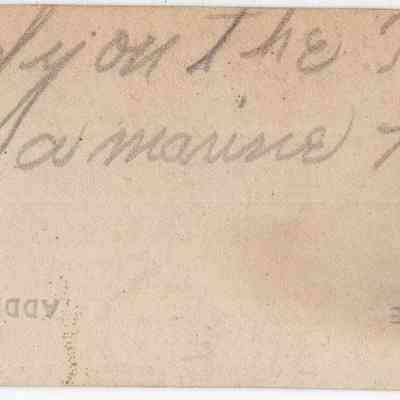 y on the
a marine
ADD
E